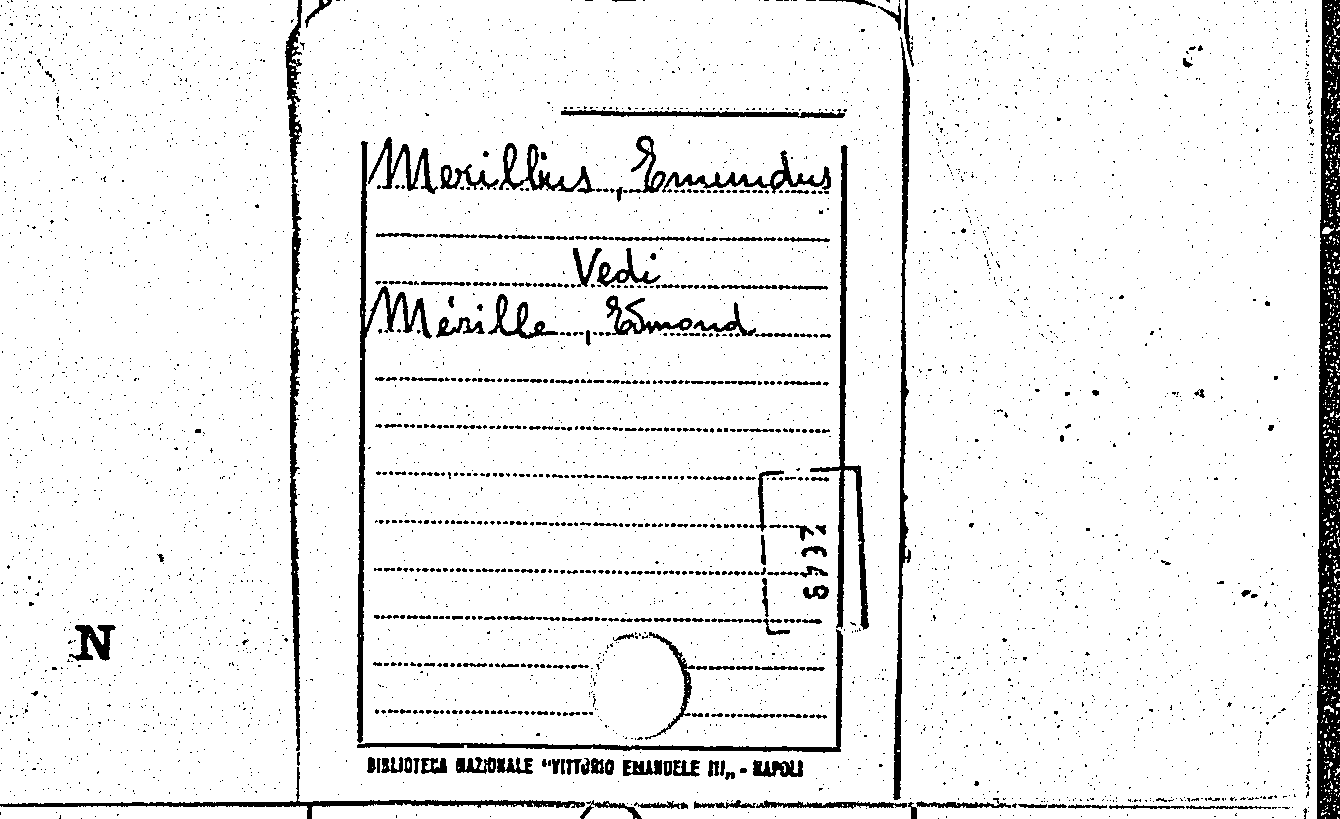 Merillius, Emundus
Vedi
Mérille, Edmond
N
BIBLIOTECA NAZIONALE "VITTORIO EMANUELE III„ - NAPOLI